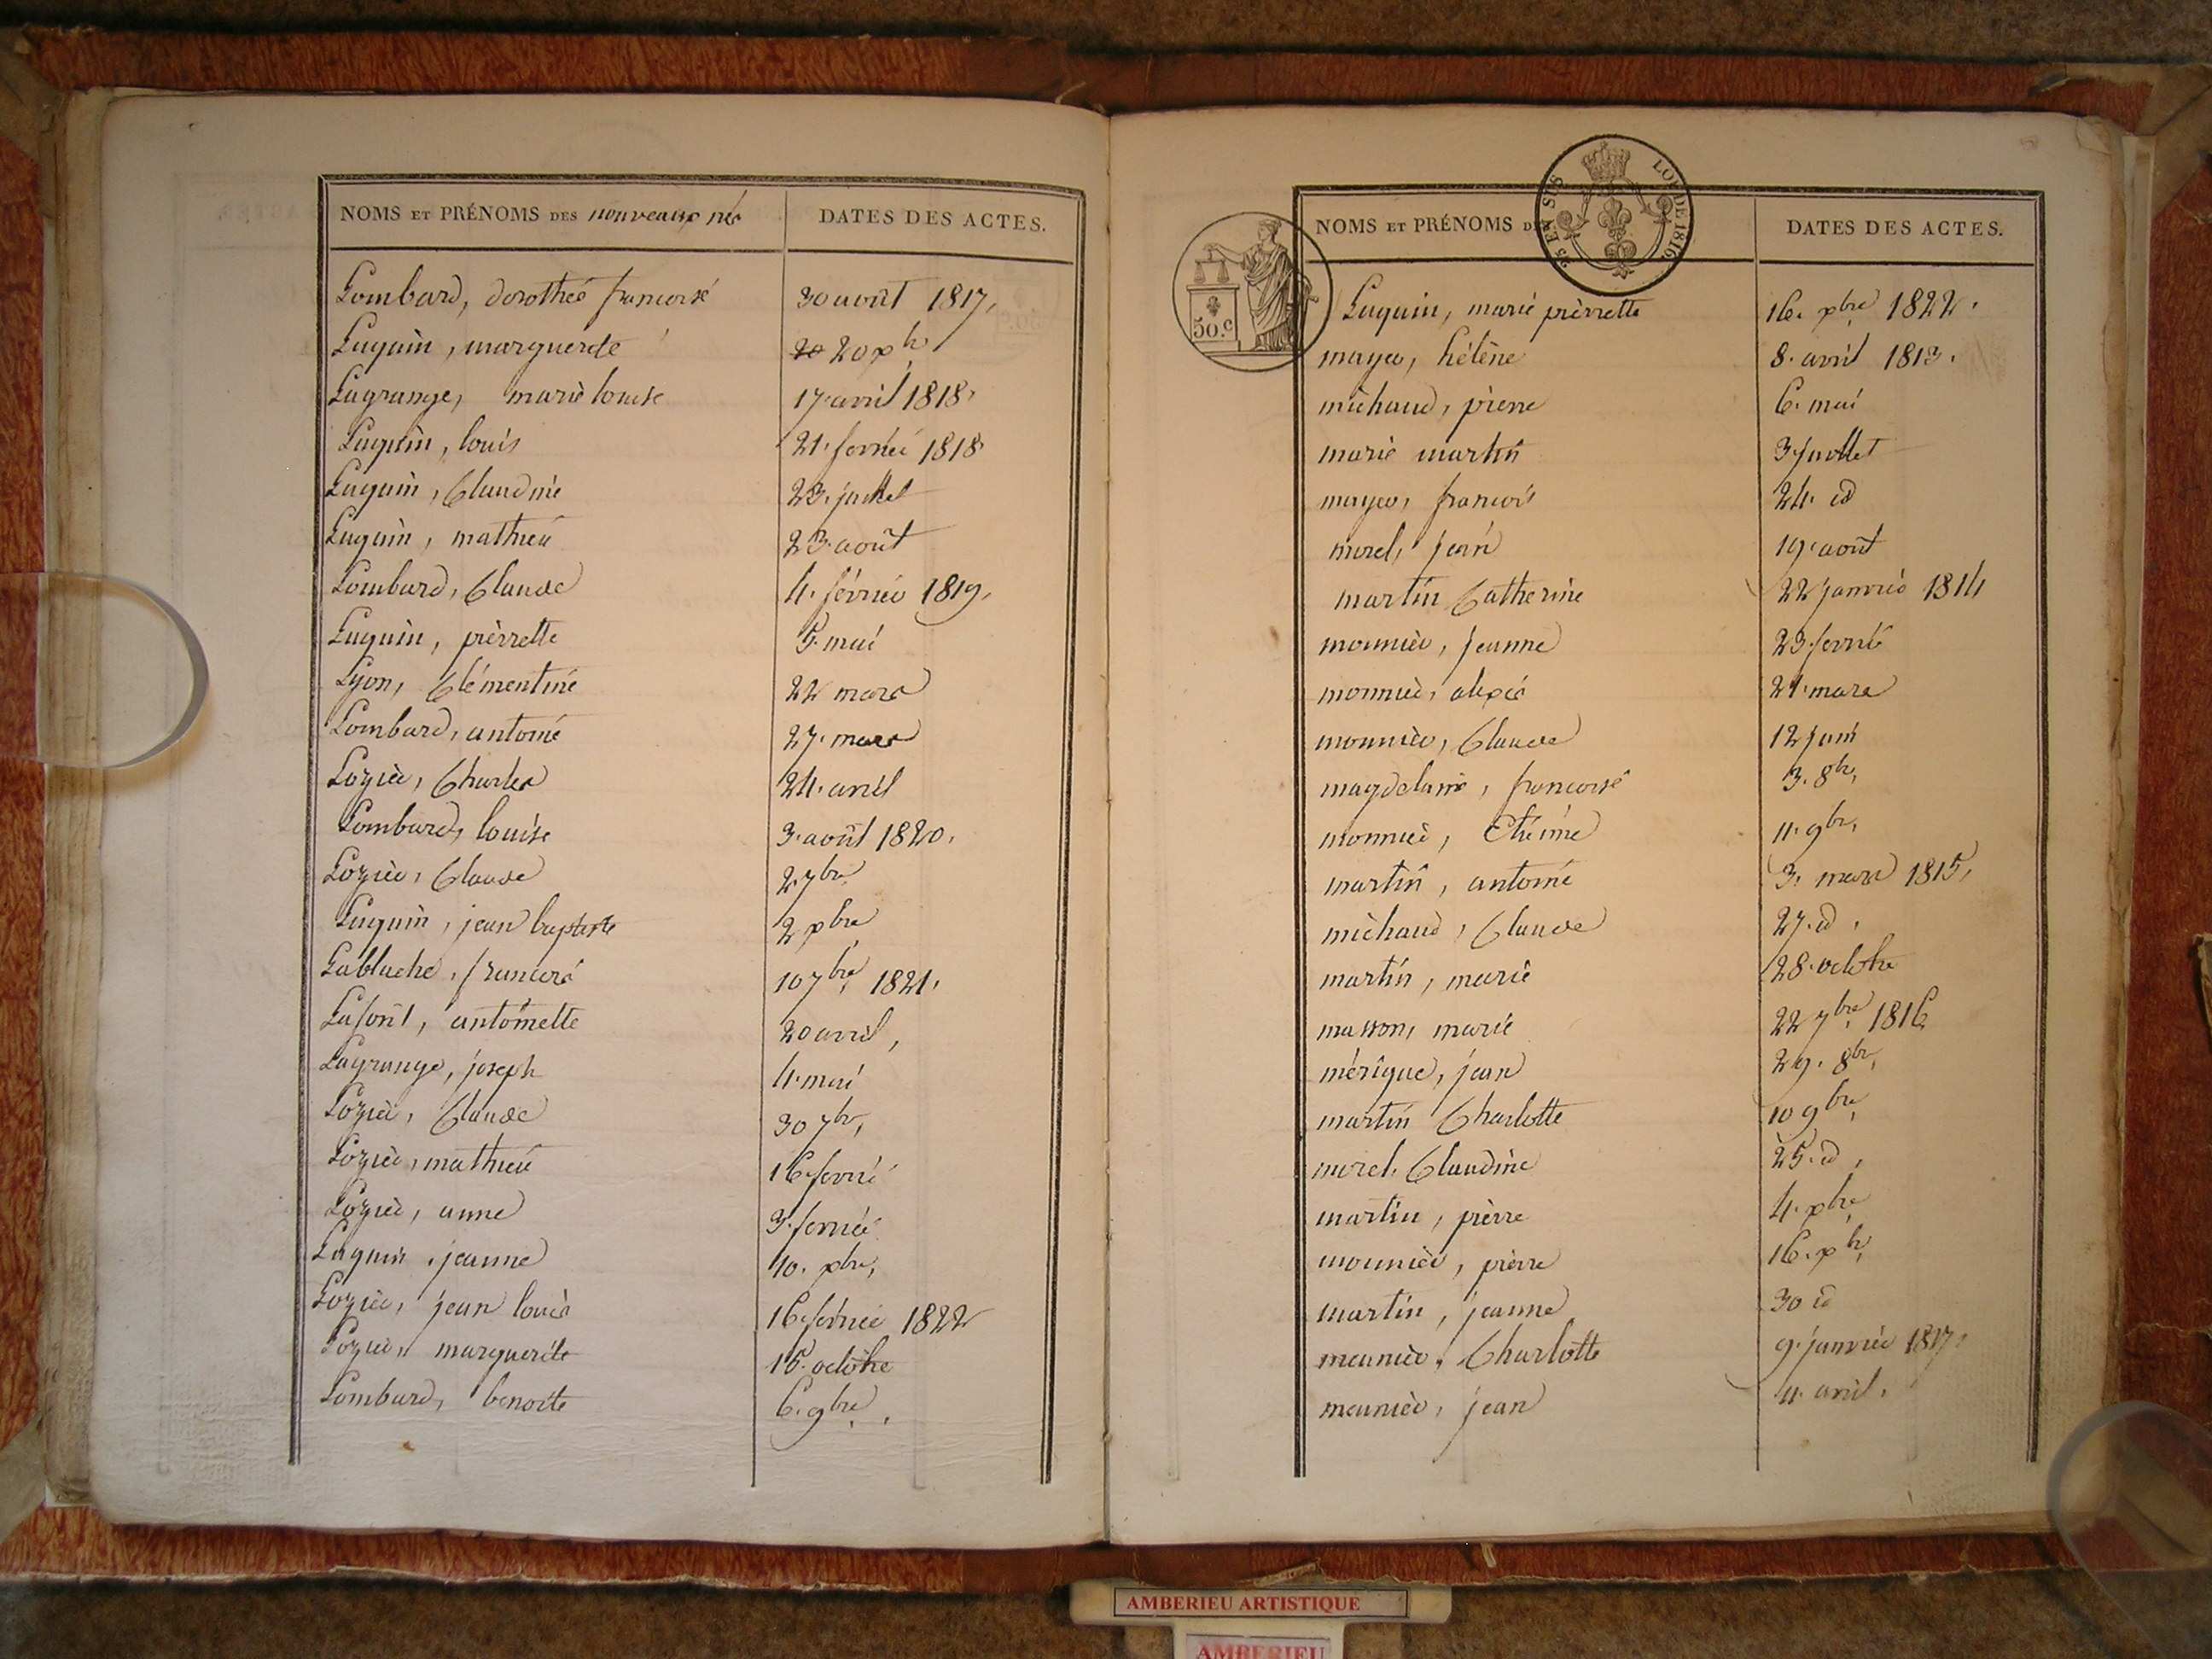 NOMS ET PRÉNOMS DES nouveaux nés DATES DES ACTES.
Lombard, dorothée francoise 30 août 1817,
Luquin, marguerite 20 xbr,
Lagrange, marie louise 17 avril 1818,
Luquin, louis 21. fevrié 1818
Luquin, Claudine 23. juillet
Luquin, mathieu 23. août
Lombard, Claude 4. février 1819,
Luquin, pièrrette 5. mai
Lyon, Clémentine 22 mars
Lombard, antoine 27. mars
Lozier, Charles 24. avril
Lombard, louise 3. août 1820,
Lozier, Claude 2. 7bre
Luquin, jean baptiste 2 xbre
Lablache, francois 10 7bre, 1821,
Lafont, antoinette 20 avril,
Lagrange, joseph 4. mai
Lozier, Claude 30 7br,
Lozier, mathieu 16. fevrié
Lozier, anne 3. fevrié
Luquin, jeanne 10. xbre,
Lozier, jean louis 16. février 1822
Lozier, marguerite 15. octobre
Lombard, benoite 6. 9bre,
NOMS ET PRÉNOMS D DATES DES ACTES.
25 EN SUS
LOI DE 1816
50.c
Luquin, marie pièrrette 16. xbre 1822.
mayer, hélène 8. avril 1813.
michaud, pierre 6. mai
marie martin 3. juillet
mayer, francois 24. id
morel, jean 19. août
martin Catherine 22 janvier 1814
mounier, jeanne 23. fevrié
monnier, alexis 21. mars
monnier, Claude 12 juin
magdelaine, francoise 3. 8br,
monnier, Etiéne 11. 9br,
martin, antoine 3. mars 1815,
michaud, Claude 27. id.
martin, marie 28. octobre
masson, marie 22 7bre, 1816
mérique, jean 29. 8br,
martin Charlotte 10 9bre,
morel, Claudine 25. id,
martin, pièrre 4. xbre,
mounier, pièrre 16. xbr,
martin, jeanne 30 id
meunier, Charlotte 9. janvier 1817,
meunier, jean 4. avril.
AMBERIEU ARTISTIQUE
AMBERIEU